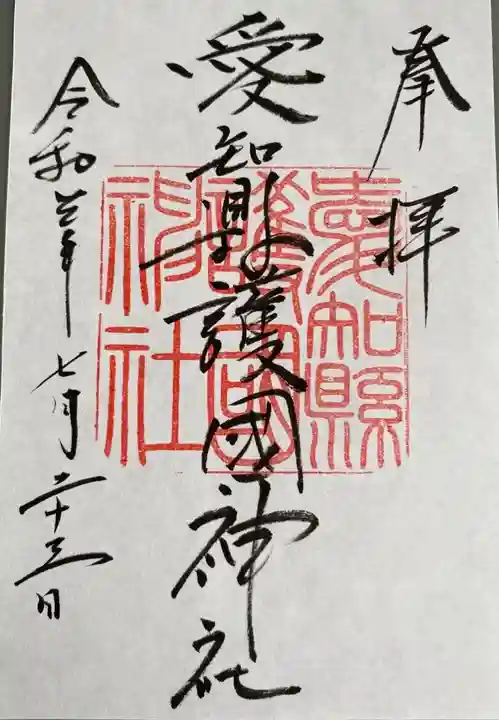 奉拝
愛知縣護國神社
愛知縣
護國
神社
令和 年七月二十三日